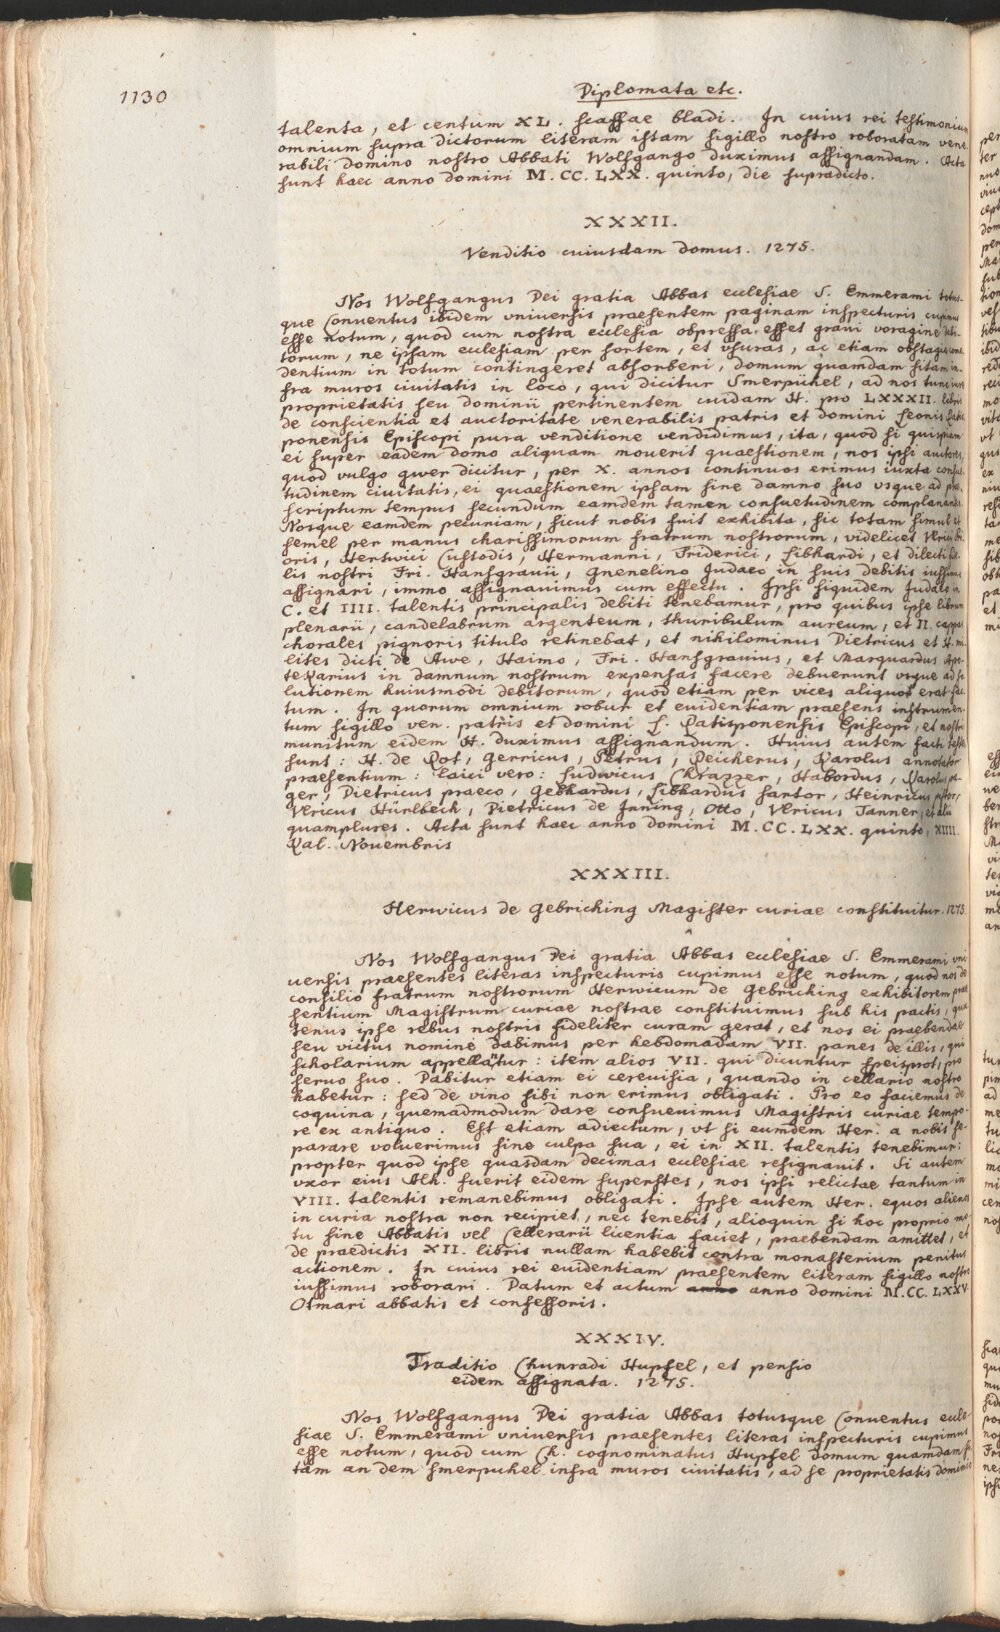 1130
Diplomata etc.
talenta, et centum XL. scaffae bladi. In cuius rei testimonium
omnium supra dictorum literam istam sigillo nostro roboratam vene-
rabili domino nostro Abbati Wolfgango duximus assignandam. Acta
sunt haec anno domini M. CC. LXX. quinto, die supradicto.
XXXII.
Venditio cuiusdam domus. 1275.
Nos Wolfgangus Dei gratia Abbas ecclesiae S. Emmerami totus-
que Conventus ibidem vniuersis praesentem paginam inspecturis cupimus
esse notum, quod cum nostra ecclesia obpressa esset graui voragine debi-
torum, ne ipsam ecclesiam per sortem, et vsuras, ac etiam obstagia
dentium in totum contingeret absorberi, domum quamdam sitam in-
fra muros ciuitatis in loco, qui dicitur Smerpühel, ad nos tunc iure
proprietatis seu dominii pertinentem cuidam H. pro LXXXII. libris
de conscientia et auctoritate venerabilis patris et domini Leonis Ratis-
ponensis Episcopi pura venditione vendidimus, ita, quod si quispiam
ei super eadem domo aliquam mouerit quaestionem, nos ipsi auctores,
quod vulgo gwer dicitur, per X. annos continuos erimus iuxta consue-
tudinem ciuitatis, ei quaestionem ipsam sine damno suo vsque ad prae-
scriptum tempus secundum eamdem tamen consuetudinem complanandam.
Nosque eamdem pecuniam, sicut nobis fuit exhibita, sic totam simul et
semel per manus charissimorum fratrum nostrorum, videlicet Vlrici
oris, Hertwici Custodis, Hermanni, Friderici, Sibhardi, et dilecti fide-
lis nostri Fri. Hansgrauii, Gnenelino Judaeo in suis debitis iussimus
assignari, immo assignauimus cum effectu. Ipsi siquidem Judaeo in
C. et IIII. talentis principalis debiti tenebamur, pro quibus ipse librum
plenarii, candelabrum argenteum, thuribulum aureum, et II. cappas
chorales pignoris titulo retinebat, et nihilominus Dietricus et H. mi-
lites dicti de Awe, Haimo, Fri. Hansgrauius, et Marquardus Apo-
tecarius in damnum nostrum expensas facere debuerunt vsque ad so-
lutionem huiusmodi debitorum, quod etiam per vices aliquot erat fac-
tum. In quorum omnium robur et euidentiam praesens instrumen-
tum sigillo ven. patris et domini L. Ratisponensis Episcopi, et nostri
munitum eidem H. duximus assignandum. Huius autem facti testes
sunt: H. de Rot, Gerricus, Petrus, Reicherus, Karolus annotator
praesentium: Laici vero: Ludwicus Chrazzer, Habordus, Karolus
ger, Dietricus praeco, Gebhardus, Sibhardus sartor, Heinricus
Vlricus Hürlbech, Dietricus de Inning, Otto, Vlricus Tanner, et alii
quamplures. Acta sunt haec anno domini M. CC. LXX. quinto, XIIII.
Kal. Nouembris
XXXIII.
Herwicus de Gebriching Magister curiae constituitur. 1275.
Nos Wolfgangus Dei gratia Abbas ecclesiae S. Emmerami vni-
uersis praesentes literas inspecturis cupimus esse notum, quod nos de
consilio fratrum nostrorum Herwicum de Gebriching exhibitorem prae-
sentium Magistrum curiae nostrae constituimus sub his pactis, qua-
tenus ipse rebus nostris fideliter curam gerat, et nos ei praebendae
seu victus nomine dabimus per hebdomadam VII. panes de illis, qui
scholarium appellatur: item alios VII. qui dicuntur speisprot, pro
seruo suo. Dabitur etiam ei cereuisia, quando in cellario nostro
habetur: sed de vino sibi non erimus obligati. Pro eo faciemus de
coquina, quemadmodum dare consueuimus Magistris curiae tempo-
re ex antiquo. Est etiam adiectum, vt si eumdem Her. a nobis se-
parare voluerimus sine culpa sua, ei in XII. talentis tenebimur:
propter quod ipse quasdam decimas ecclesiae resignauit. Si autem
vxor eius Alh. fuerit eidem superstes, nos ipsi relictae tantum in
VIII. talentis remanebimus obligati. Ipse autem Her. equos alienos
in curia nostra non recipiet, nec tenebit, alioquin si hoc proprio mo-
tu sine Abbatis vel Cellerarii licentia faciet, praebendam amittet, et
de praedictis XII. libris nullam habebit contra monasterium penitus
actionem. In cuius rei euidentiam praesentem literam sigillo nostro
iussimus roborari. Datum et actum anno anno domini M. CC. LXXV
Otmari abbatis et confessoris.
XXXIV.
Traditio Chunradi Hupfel, et pensio
eidem assignata. 1275.
Nos Wolfgangus Dei gratia Abbas totusque Conventus eccle-
siae S. Emmerami vniuersis praesentes literas inspecturis cupimus
esse notum, quod cum Ch. cognominatus Hupfel domum quamdam si-
tam an dem smerpuhel infra muros ciuitatis, ad se proprietatis dominio